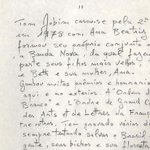 11
Tom Jobim casou-se pela 2ª
em 1978 com Ana Beatriz
formou seu próprio conjunto a
Banda Nova, da qual fazem
parte seus filhos mais velhos
e Beth e sua mulher, Ana.
Ganhou muitos prêmios e homenagens
aqui e no exterior. A "Ordem do
Branco" e a "Ordre de Grand
des Arts et de Letras da França
entre outros. Tem gravado vários
sempre tentando salvar o Brasil
gente, seus bichos e sua floresta